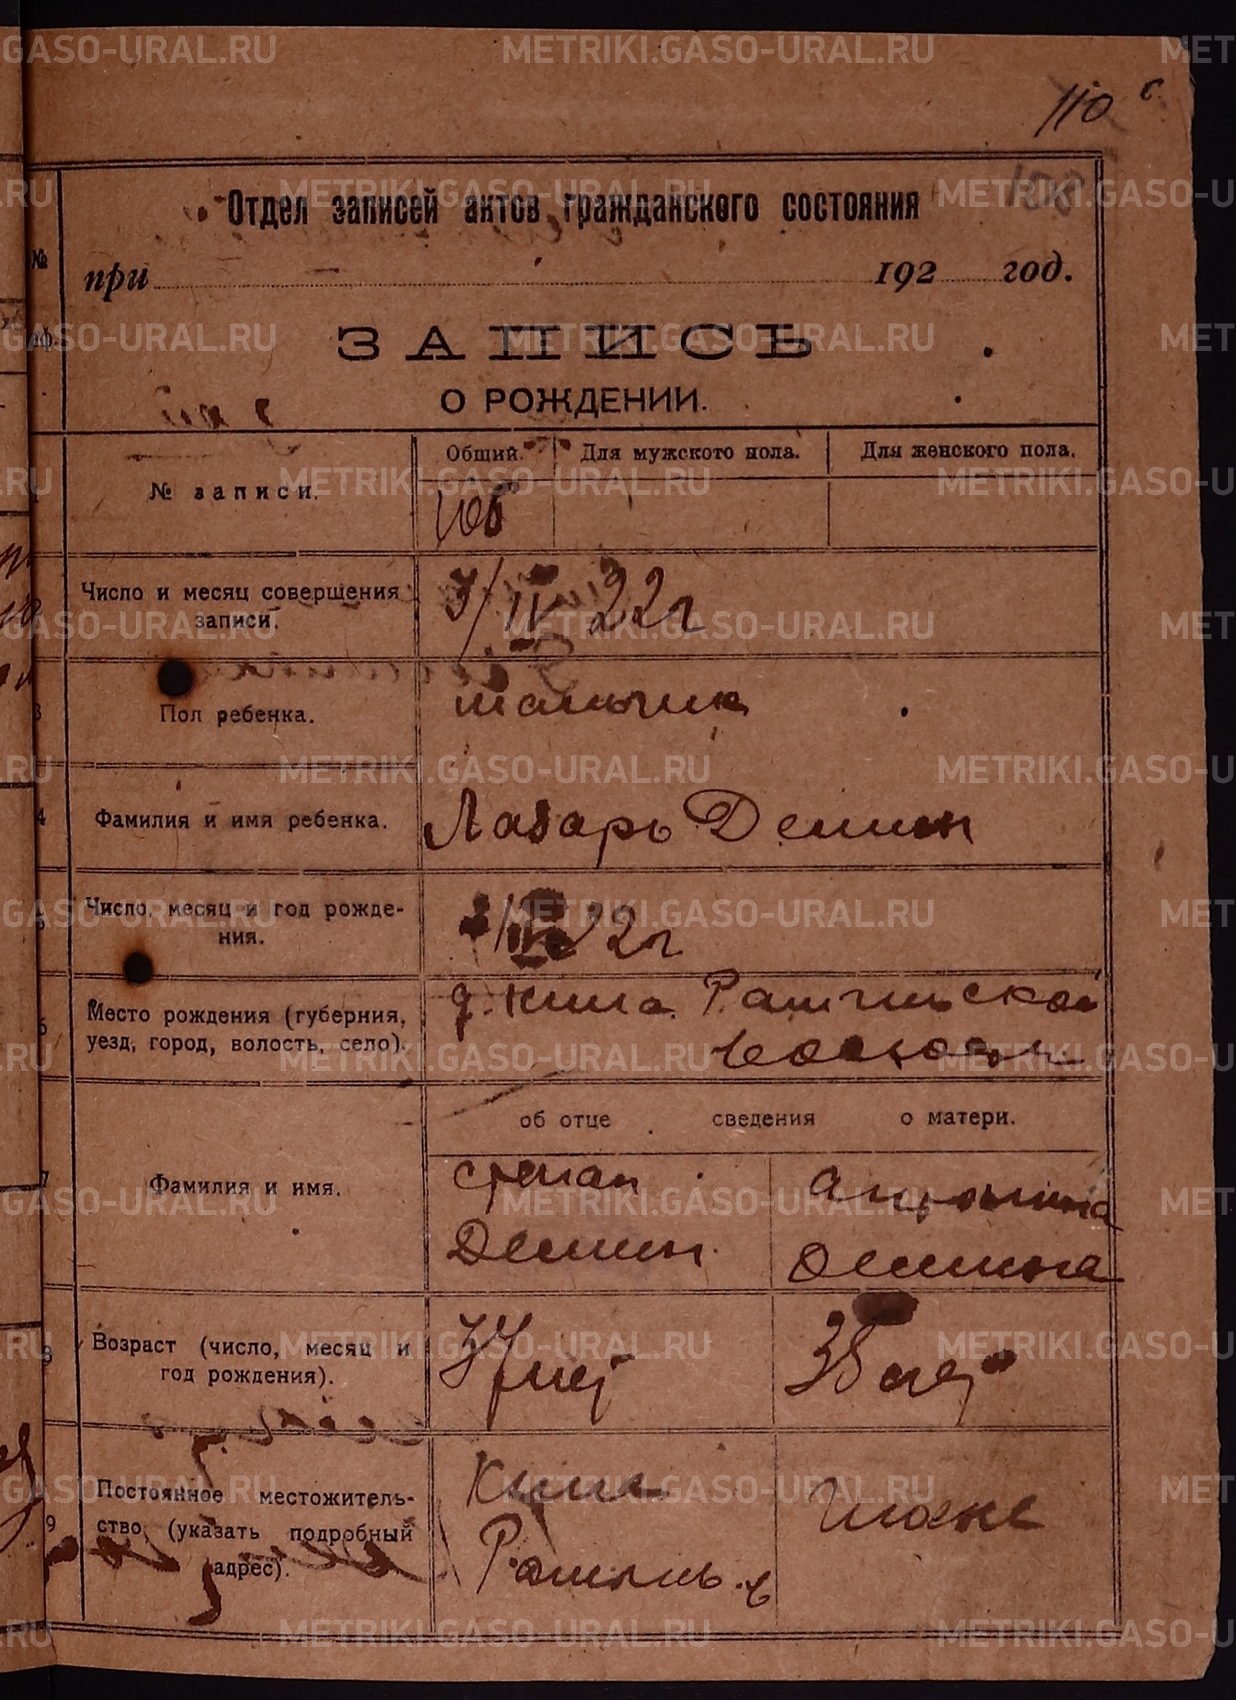 110 с
108
Отдел записей актов гражданского состояния
при 192 год.
ЗАПИСЬ
О РОЖДЕНИИ.
№ записи.
Общий. Для мужского пола. Для женского пола.
106
Число и месяц совершения записи.
3/IV 22 г
Пол ребенка.
мальчик
4 Фамилия и имя ребенка.
Лазарь Демин
Число, месяц и год рожде-
ния.
22 г.
Место рождения (губерния,
уезд, город, волость, село).
д.
волости
об отце сведения о матери.
7 Фамилия и имя.
Степан
Демин
Демина
8 Возраст (число, месяц и
год рождения).
37 лет
35 лет
9 Постоянное местожитель-
ство (указать подробный
адрес).
тоже
METRIKI.GASO-URAL.RU